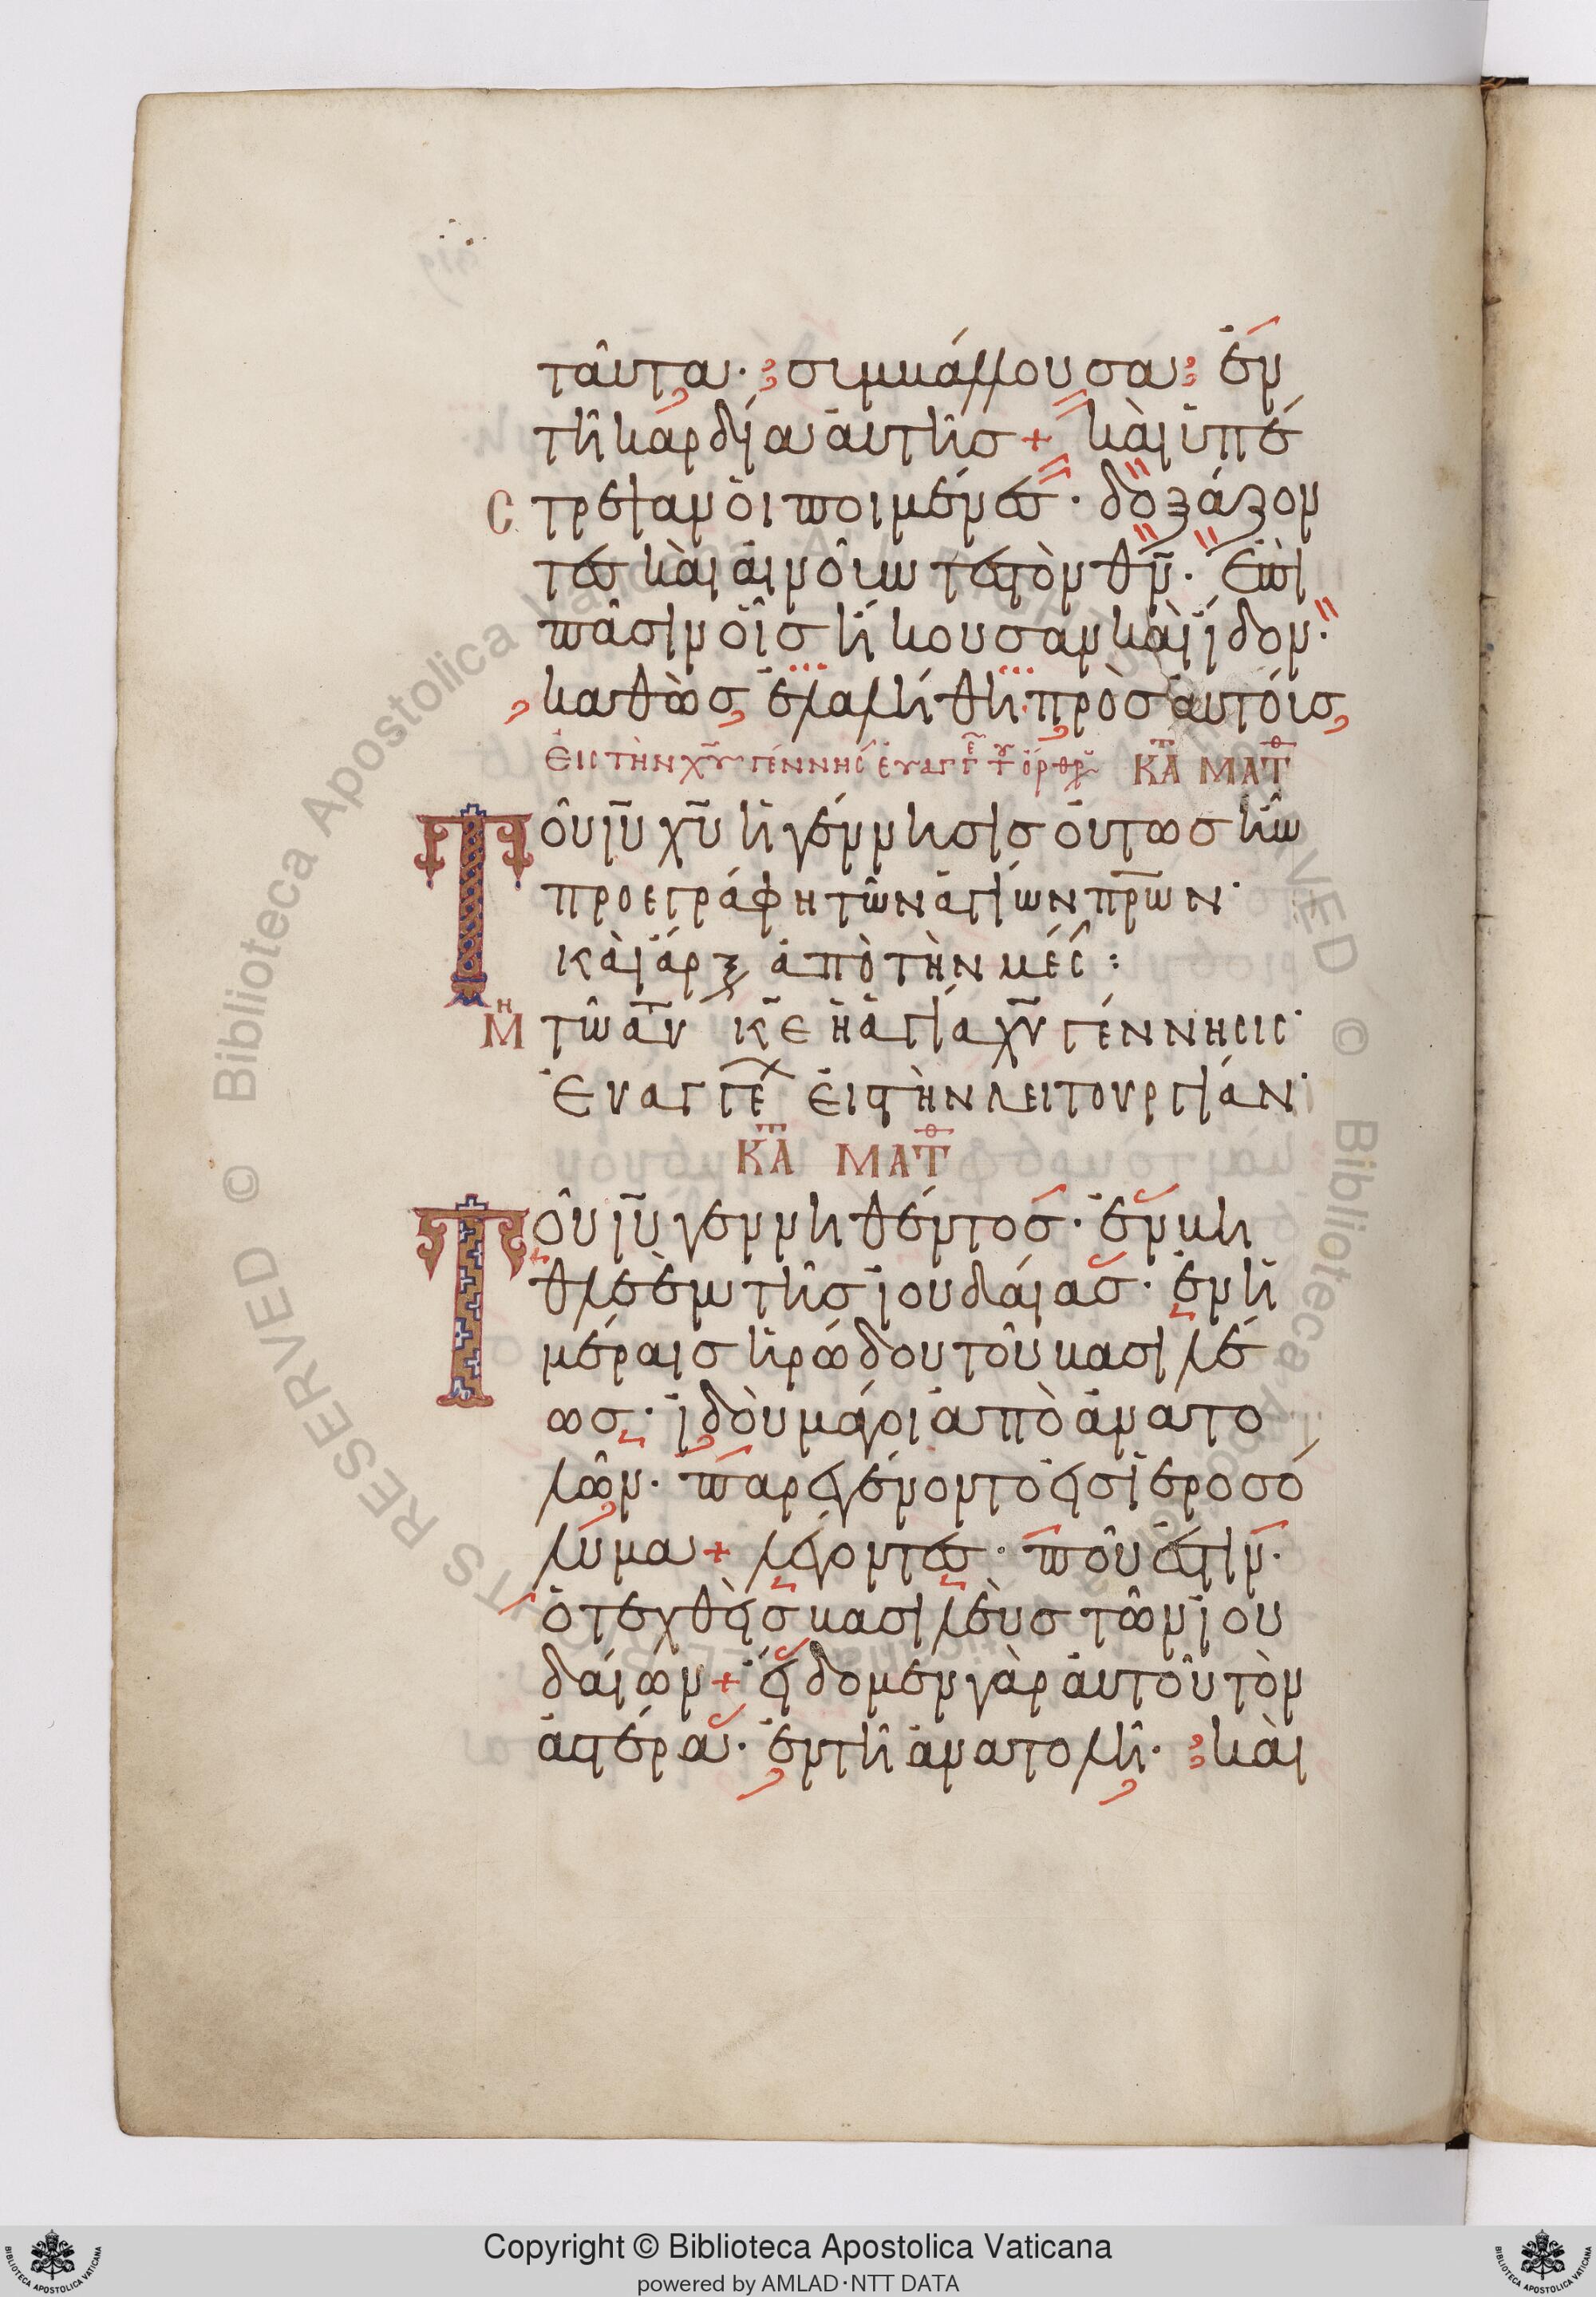 ταῦτα· συμβάλλουσα ἐν
τῆ καρδία ἀυτῆσ + κὰι ὑπέ
στρεψαν ὁι ποιμένεσ· δοξάζον
τεσ κὰι ἀινοῦντεσ τὸν θν̄· ἐπὶ
πᾶσιν ὁῖσ ἤκουσαν κὰι ἴδον·
καθὼσ ἐλαλήθη πρὸσ ἀυτόυσ
ἐισ τὴν χῡ γέννησ ἐυαγγε τ ὄρθρ ΚΑΤ ΜΑΤΘ
Τοῦ ιῡ χῡ ἡ γέννησισ ὅυτωσ ἦν
προεγράφη τῶν ἁγίων πρ̄ων·
κὰι ἄρξ ἀπὸ τὴν μέσ :
ΜΗ τῶ ἀυτ κε ἡ ἁγία χῡ γέννησισ·
Ἐυαγγε ἐισ τὴν λειτουργίαν·
ΚΑΤ ΜΑΤΘ
Τοῦ ιῡ γεννηθέντοσ· ἐν βη
θλεὲμ τῆσ ἰουδάιασ· ἐν ἡ
μέραισ ἡρώδου τοῦ βασιλέ
ωσ· ἰδὸυ μάγοι ἀπὸ ἀνατο
λῶν· παρεγένοντο ἐισ ἱεροσό
λυμα + λέγοντεσ· ποῦ ἐστιν·
ὁ τεχθεὶσ βασιλὲυσ τῶν ἰου
δάιων + ἔιδομεν γὰρ ἀυτοῦ τὸν
ἀστέρα· ἐν τῆ ἀνατολῆ· κὰι
Copyright © Biblioteca Apostolica Vaticana
powered by AMLAD·NTT DATA